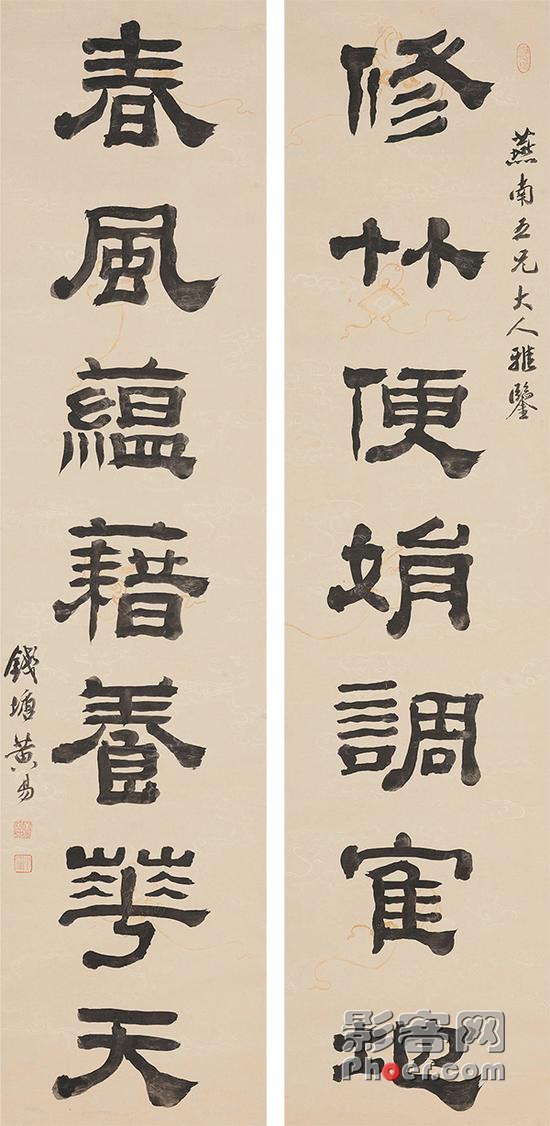 燕南五兄大人雅鑒
修竹便娟調寉地
春風蘊藉養華天
錢塘黃易
影客网
Phoer.com